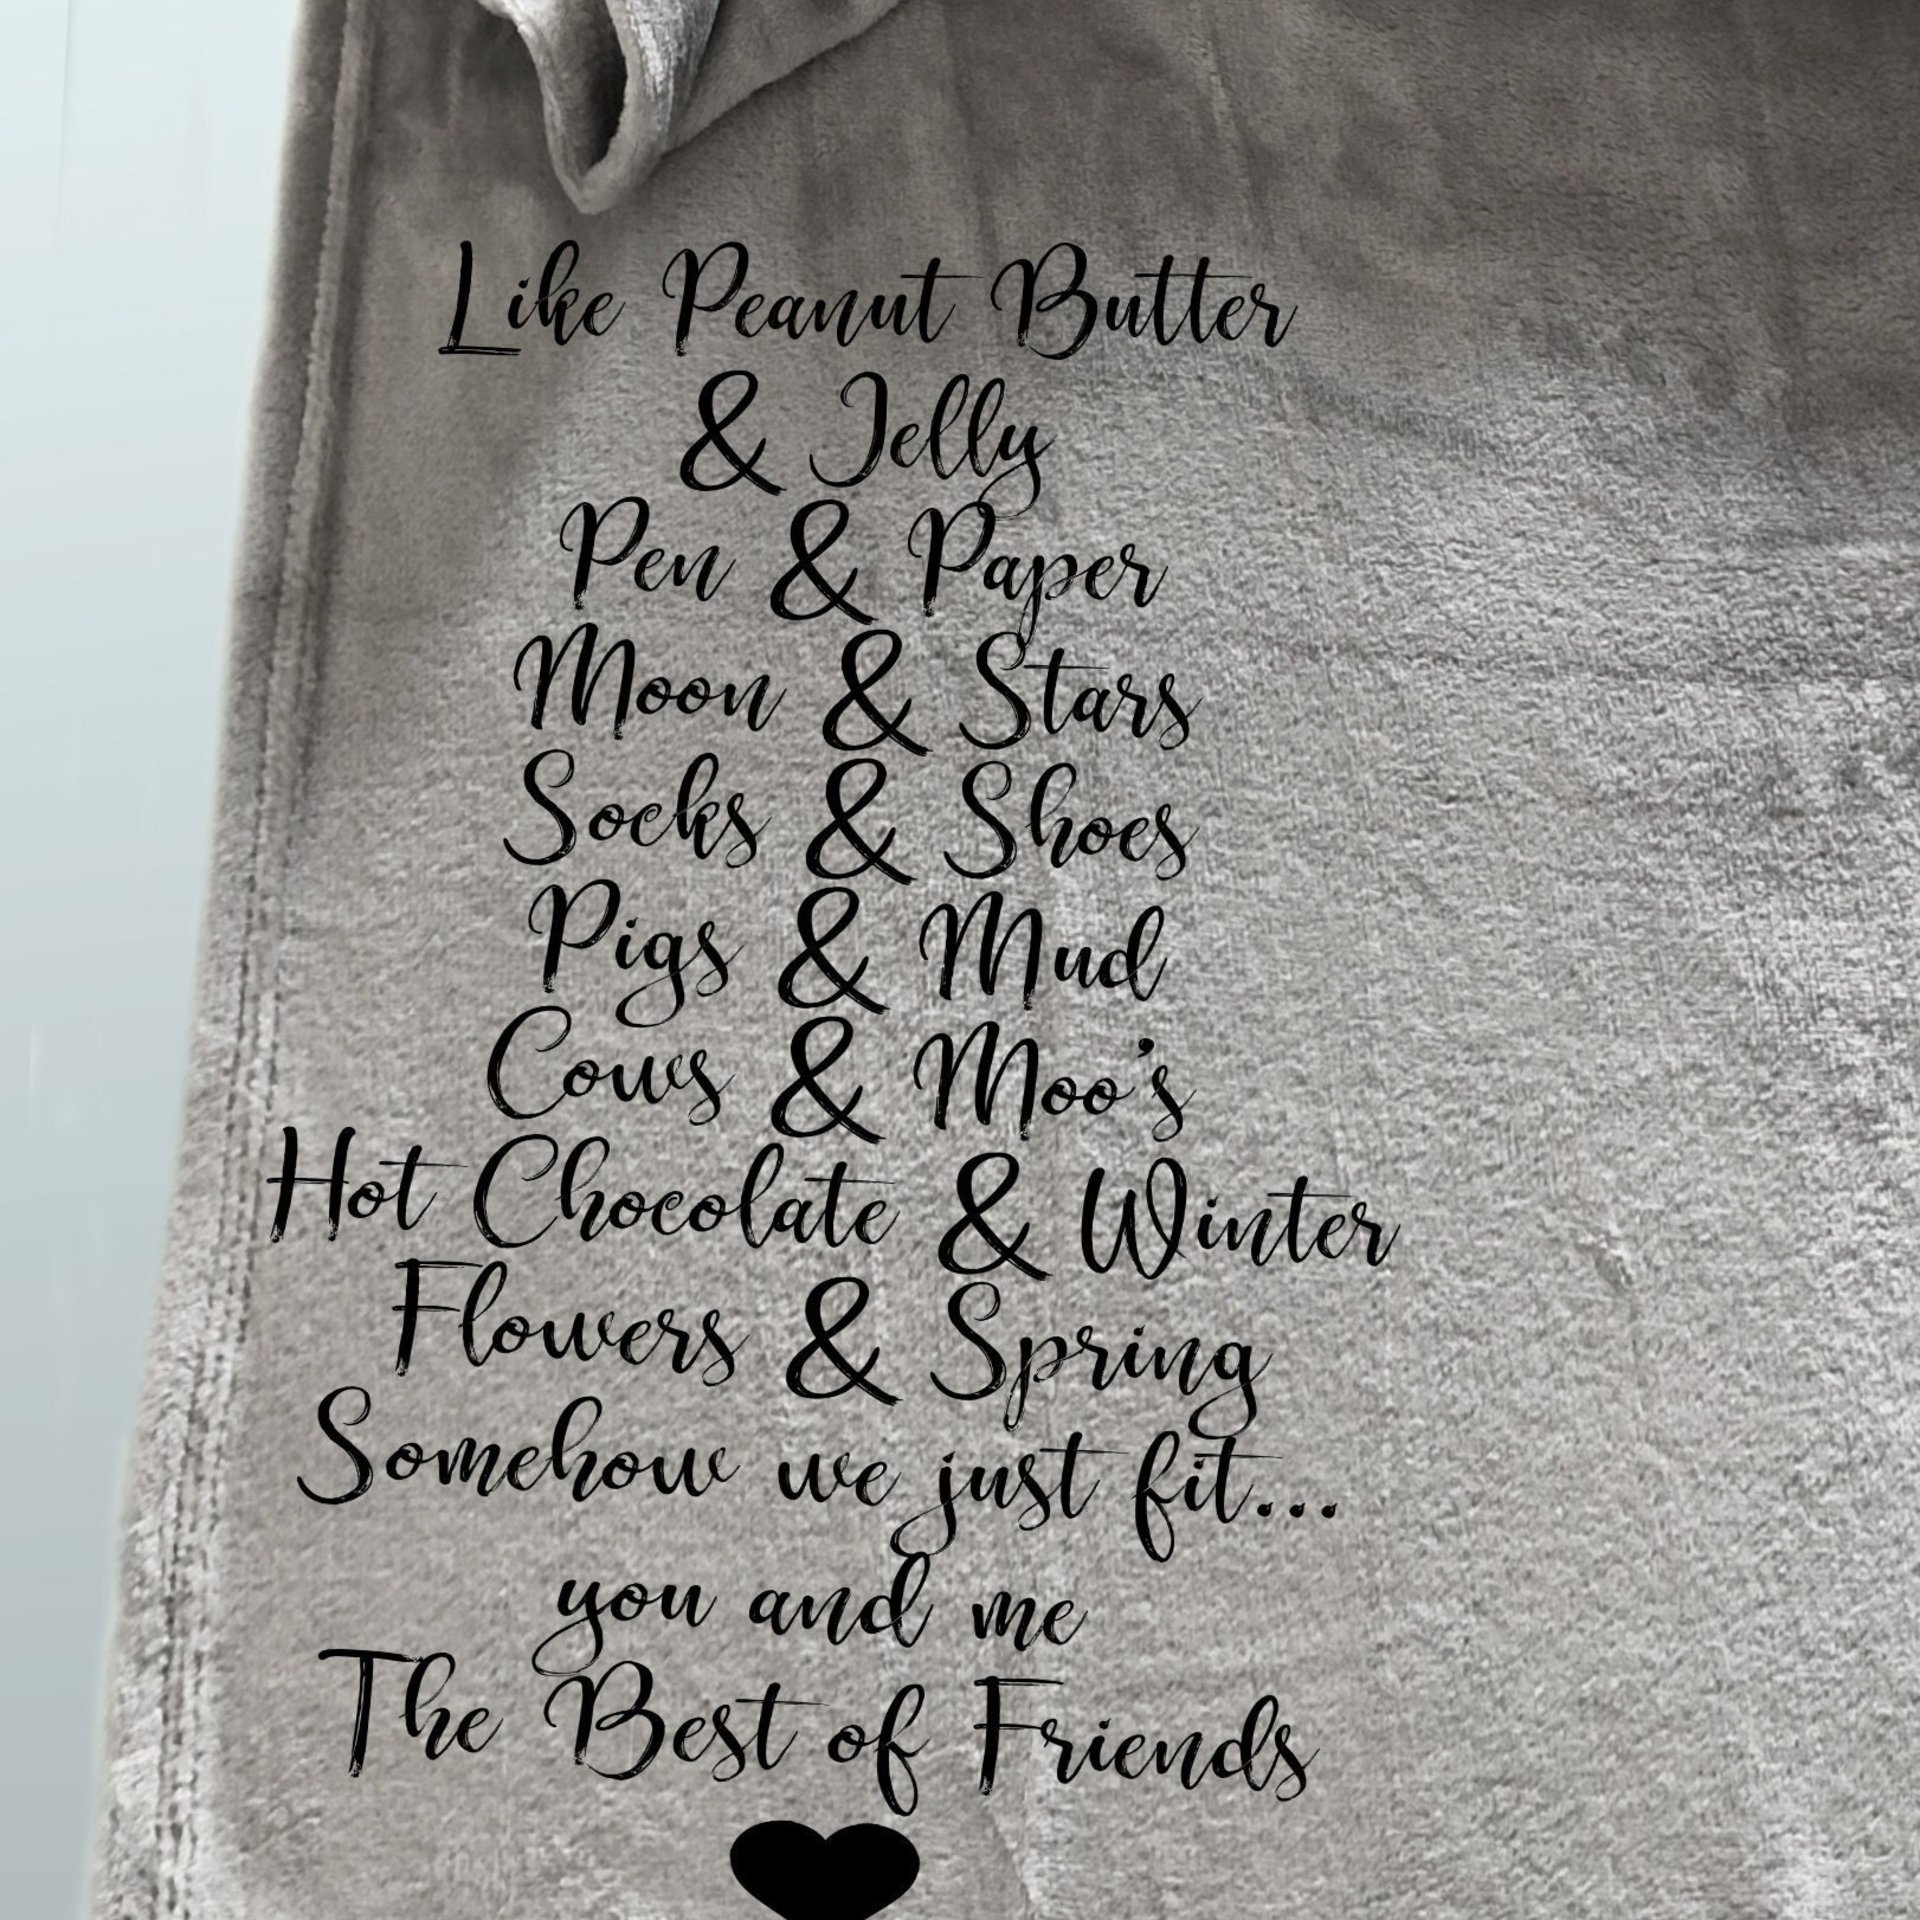 Like Peanut Butter
& Jelly
Pen & Paper
Moon & Stars
Socks & Shoes
Pigs & Mud
Cows & Moo's
Hot Chocolate & Winter
Flowers & Spring
Somehow we just fit...
you and me
The Best of Friends